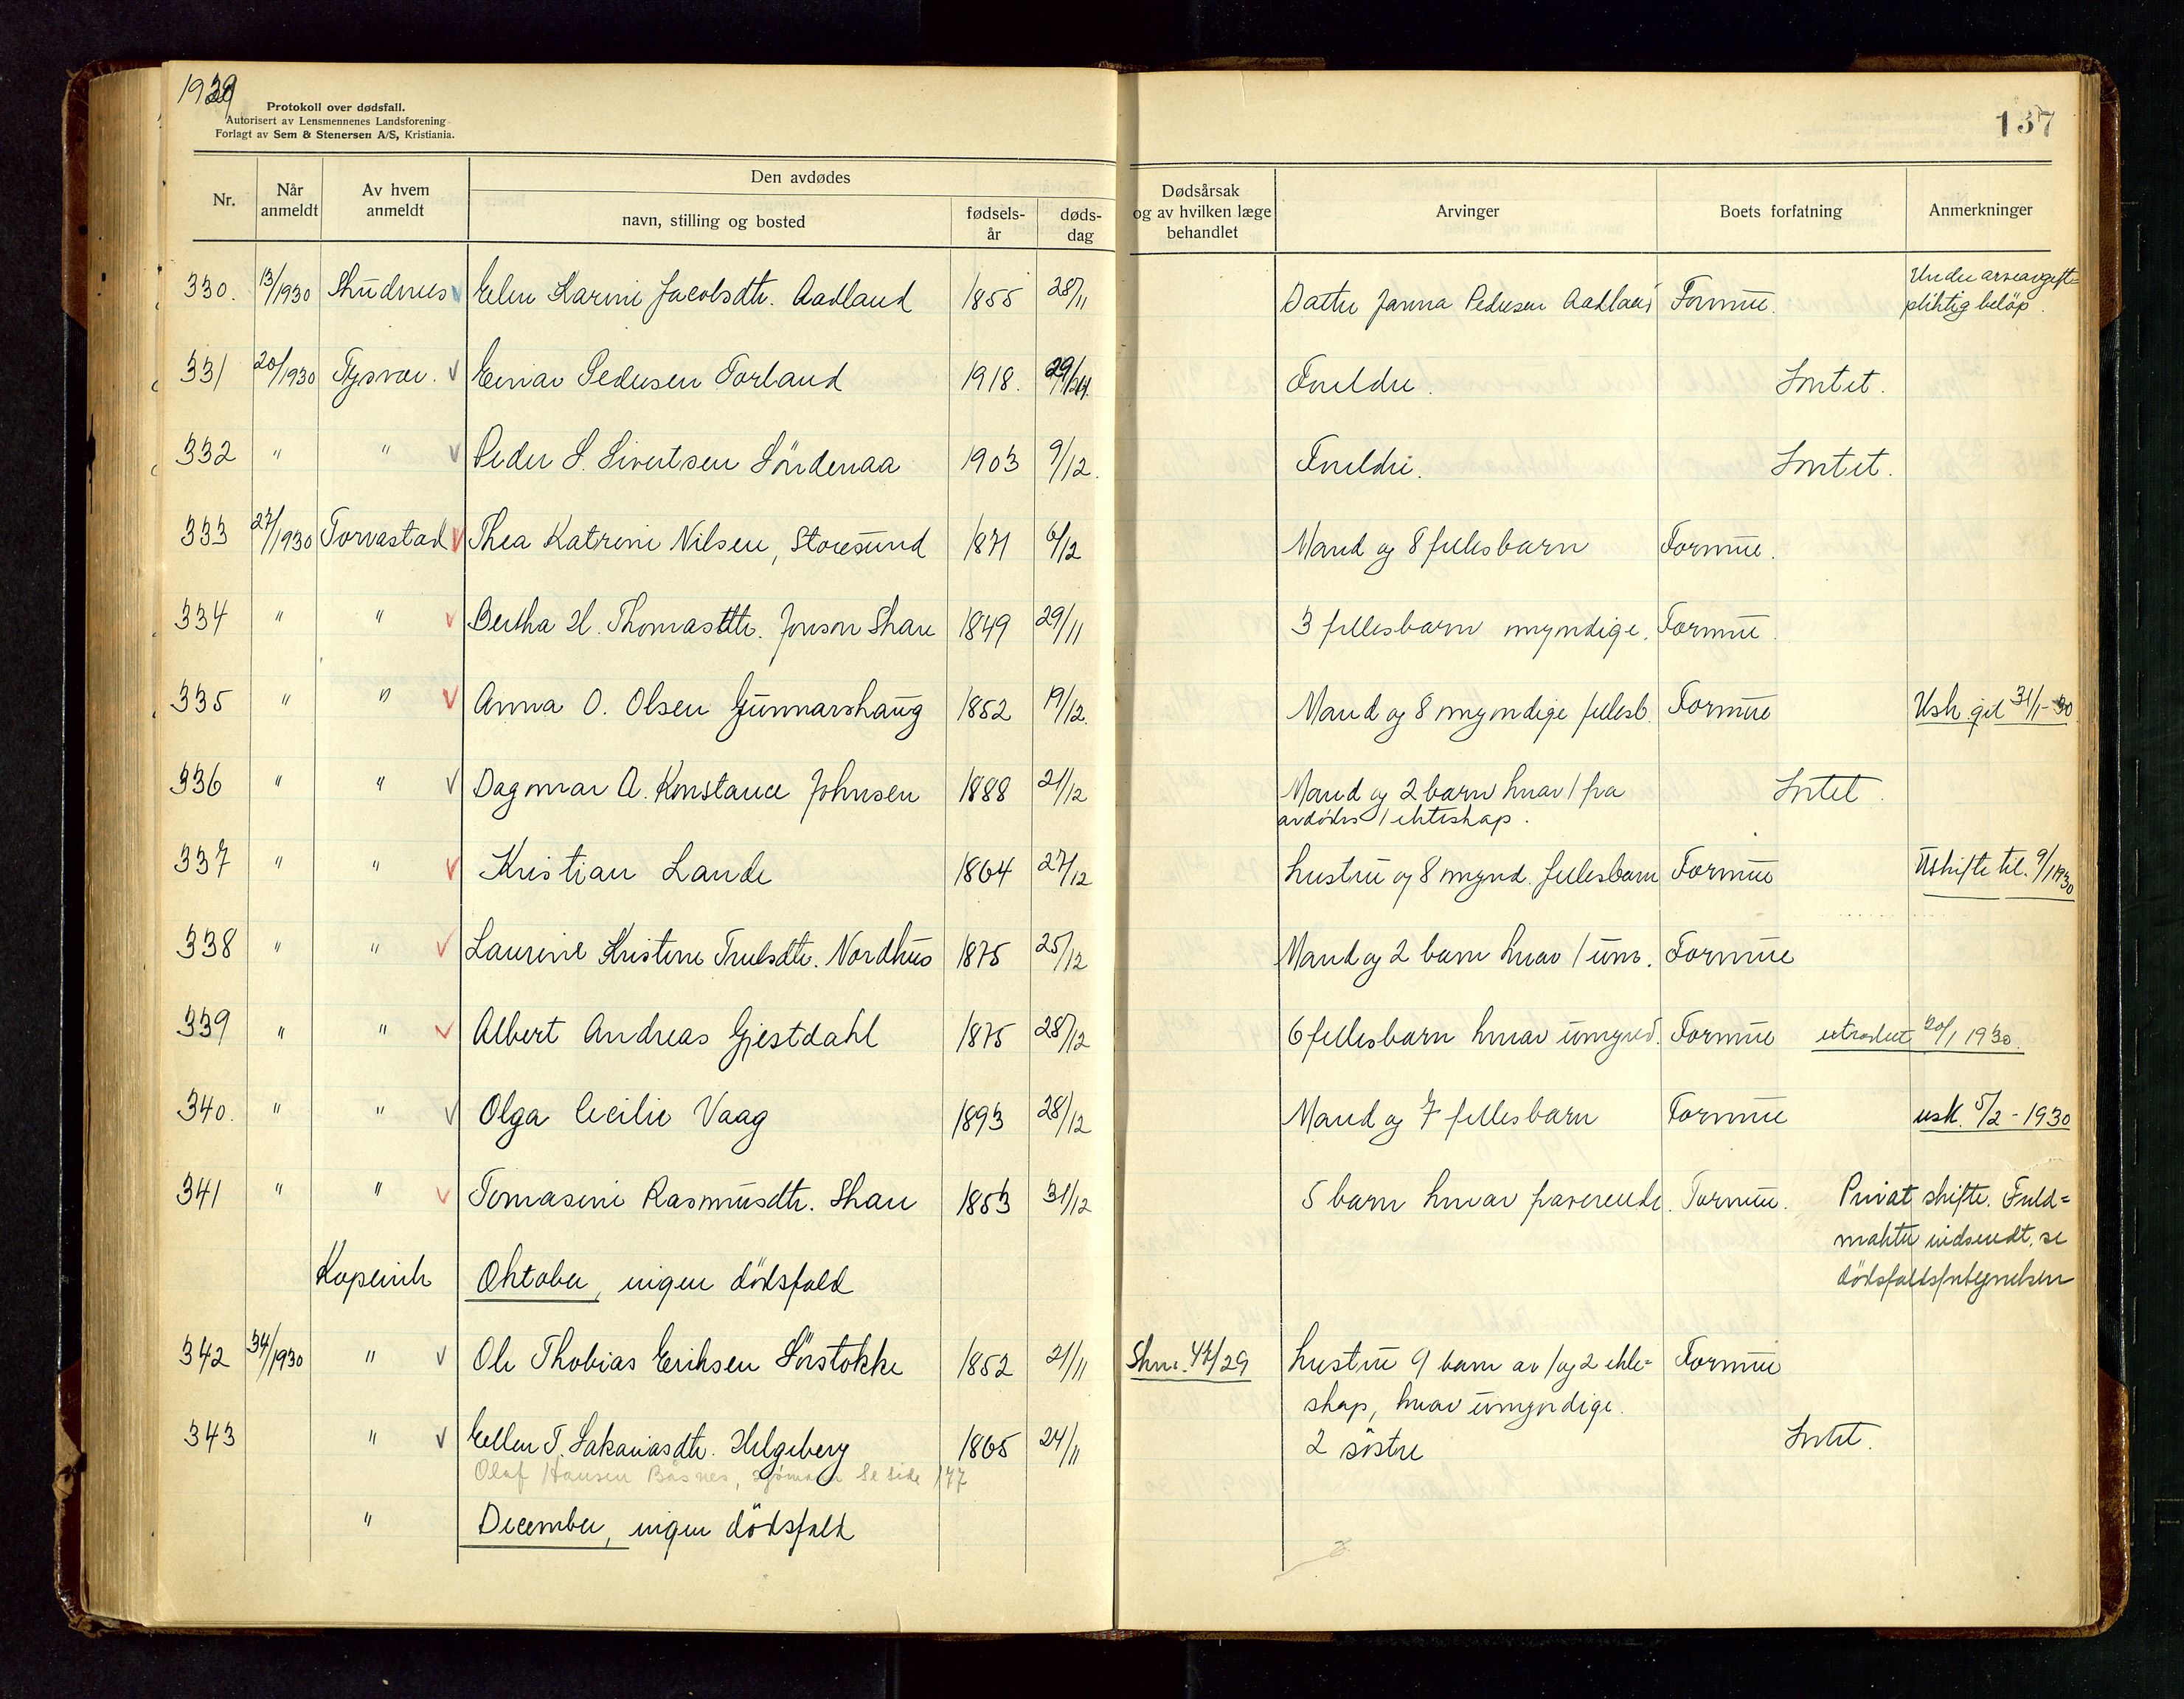 1929
Protokoll over dødsfall.
Autorisert av Lensmennenes Landsforening
Forlagt av Sem & Stenersen A/S, Kristiania.
137
Nr.
Når anmeldt
Av hvem anmeldt
Den avdødes
navn, stilling og bosted
fødsels-år
døds-dag
Dødsårsak og av hvilken læge behandlet
Arvinger
Boets forfatning
Anmerkninger
330. 13/1930 Skudnes v Elen Karine Jacobsdtr. Aadland 1855 28/11 Datter Janna Pedersen Aadland Formue. Under arveavgift=
pliktig beløp.
331 20/1930 Tysvær. v Einar Pedersen Førland 1918. Foreldre. Intet.
332 " " v Peder S. Sivertsen Söndenaa 1903 9/12. Foreldre. Intet.
333 27/1930 Torvastad v Thea Katrine Nilsen, Storesund 1871 6/12 Mand og 8 fellesbarn Formue.
334 " " v Bertha H. Thomasdtr. Jonson Skare 1849 29/11 3 fellesbarn myndige. Formue.
335 " " v Anna O. Olsen Gunnarshaug 1852 19/12. Mand og 8 myndige fellesb. Formue Usk. gel 31/1-30
336 " " v Dagmar A. Konstance Johnsen 1888 21/12 Mand og 2 barn hvav 1 fra Intet.
avdødes 1 ekteskap.
337 " " v Kristian Lande 1864 27/12 hustru og 8 mynd. fellesbarn Formue Uskifte til. 9/1 1930
338 " " v Laurine Kristine Trulsdtr. Nordhus 1875 25/12 Mand og 2 barn hvav 1 um. Formue
339 " " v Albert Andreas Gjestdahl 1875 28/12 6 fellesbarn hvorav umynd. Formue 20/1 1930.
340. " " v Olga Cecilie Vaag 1893 28/12 Mand og 7 fellesbarn Formue usk. 5/2-1930
341 " " v Tomasine Rasmusdtr. Skare 1853 31/12 5 barn hvorav fraværende. Formue. Privat skifte. Fuld=
makter indsendt, se
dödsfaldsfortegnelsen
Kopervik Oktober, ingen dödsfald
342 34/1930 " v Ole Thobias Eriksen Sörstokke 1852 21/11 Skm. 47/29 hustru 9 barn av 1 og 2 ekte=
skap, hvorav umyndige. Formue
343 " v Ellen T. Sakariasdtr. Helgeberg 1865 24/11 2 söstre Intet.
Olaf Hansen Båsnes, sjømann Se side 177
" December, ingen dödsfald